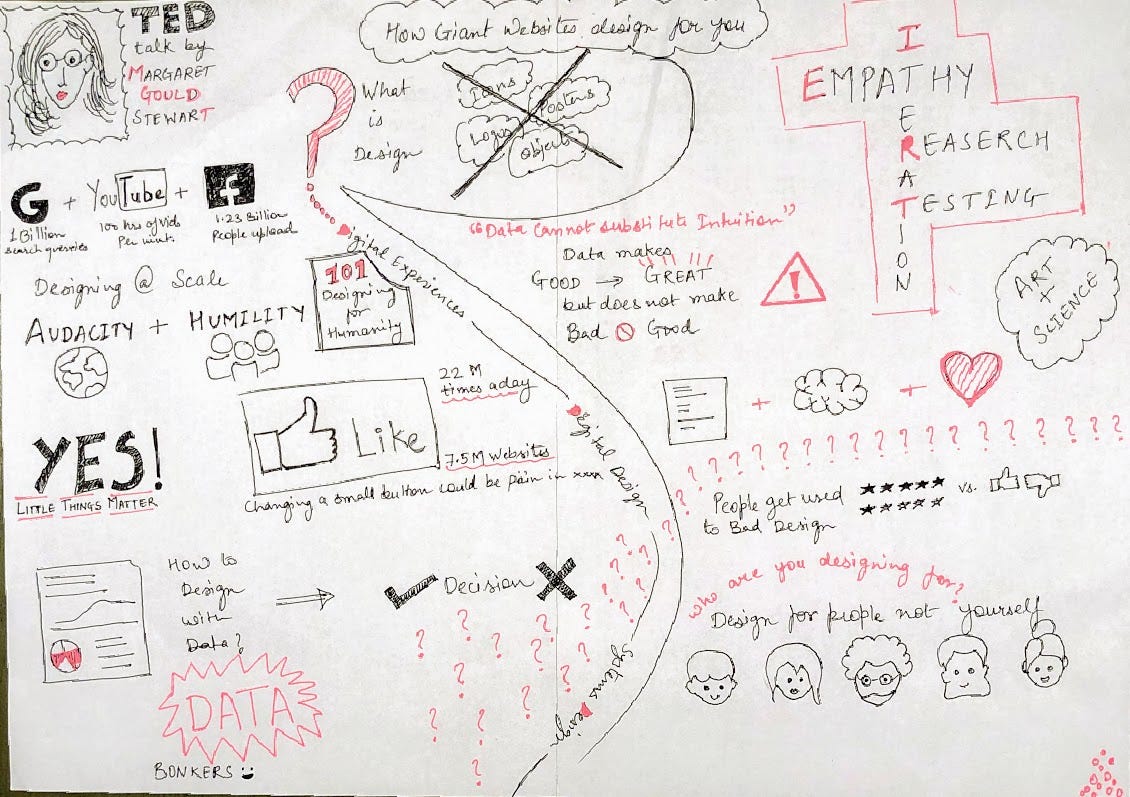 TED
talk by
MARGARET
GOULD
STEWART
How Giant Websites design for you
What
is
Design
Icons
Posters
Logos
Objects
EMPATHY
ITERATION
REASERCH
TESTING
ART
+
SCIENCE
G + YouTube + f
1 Billion
Search queries
100 hrs of vids
Per mint.
1.23 Billion
People upload
Designing @ Scale
AUDACITY + HUMILITY
Digital Experiences
101
Designing
for
Humanity
"Data Cannot substitute Intuition"
Data makes
GOOD → GREAT
but does not make
Bad Good
22 M
times a day
Like
7.5 M websites
Changing a small button could be pain in xxxx
YES!
LITTLE THINGS MATTER
Digital Design
+ +
People get used ★★★★★ vs.
to Bad Design ★★★★★
HOW to
Design
with
Data?
Decision
DATA
BONKERS
Systems Design
who are you designing for?
Design for people not yourself